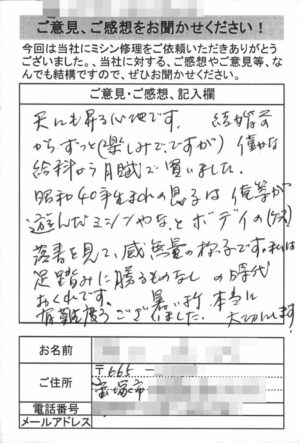 ご意見、ご感想をお聞かせください！
今回は当社にミシン修理をご依頼いただきありがとう
ございました。、当社に対する、ご感想やご意見等、な
んでも結構ですので、ぜひお聞かせください。
ご意見・ご感想、記入欄
天にも昇る心地です。 結婚前
から、ずっと(楽しみで、ですが) 僅かな
給料から月賦で買いました。
昭和40年生まれの息子は俺等が
遊んだミシンやな、とボディの(ケース)
落書を見て、感無量の様子です。私は
足踏みに勝るものなしの時代
おくれです。 暑い折 本当に
有難度うございました。 大切にします!
お名前
ご住所
〒665 -
宝塚市
電話番号
メールアドレス